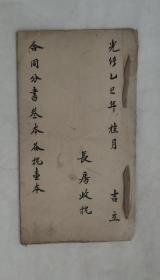 光绪乙巳年桂月 吉立
長房收执
合同分書叁本各执壹本